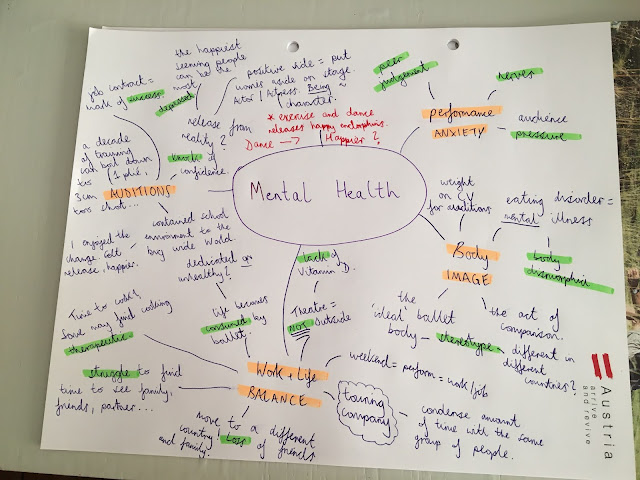 Mental Health
job contract =
walk of success.
the happiest
seeming people
can be the
most
depressed
release from
reality?
positive side = put
worries aside on stage.
Actor / Actress. Being a
character.
* exercise and dance
releases happy endorphins.
Dance → Happier?
peer
judgement
nerves
performance
ANXIETY
audience
pressure
a decade
of training
can boil down
to 1 plié,
3cm
too short...
AUDITIONS
knock of
confidence.
I enjoyed the
change. Felt
release, happier.
contained school
environment to the
big wide world.
dedicated or
unhealthy?
life becomes
consumed by
ballet.
Time to cook!
Some may find cooking
therapeutic
struggle to find
time to see family,
friends, partner...
Work + Life
BALANCE
move to a different
country. Loss of friends
and family.
lack of
Vitamin D.
Theatre =
NOT outside
weekend = perform = work/job
touring
company
condense amount
of time with the same
group of people.
weight
on CV
for auditions
eating disorder =
mental illness
Body
IMAGE
body
dismorphia
the
'ideal' ballet
body - stereotype
the act of
comparison.
different in
different
countries?
Austria
arrive
and revive